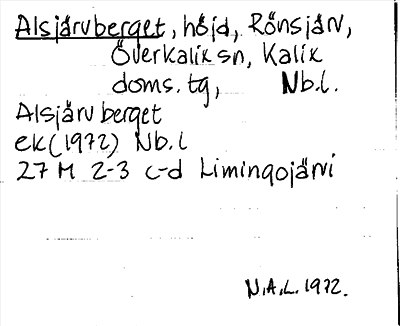 Alsjärvberget, höjd, Rönsjärv,
Överkalix sn, Kalix
doms. tg, Nb.l.
Alsjärvberget
ek (1972) Nb.l
27 M 2-3 c-d Limingojärvi
N.A.L. 1972.